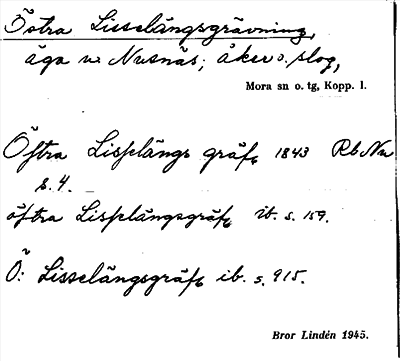 Östra Lisselängsgrävning,
äga v. Nusnäs; åker o. slog,
Mora sn o. tg, Kopp. l.
Öftra Lisslängs gräfv 1843 Rb Nu
s. 4.
öftra Lisslängsgräfv ib. s. 159.
Ö: Lisselängsgräfv ib. s. 915.
Bror Lindén 1945.